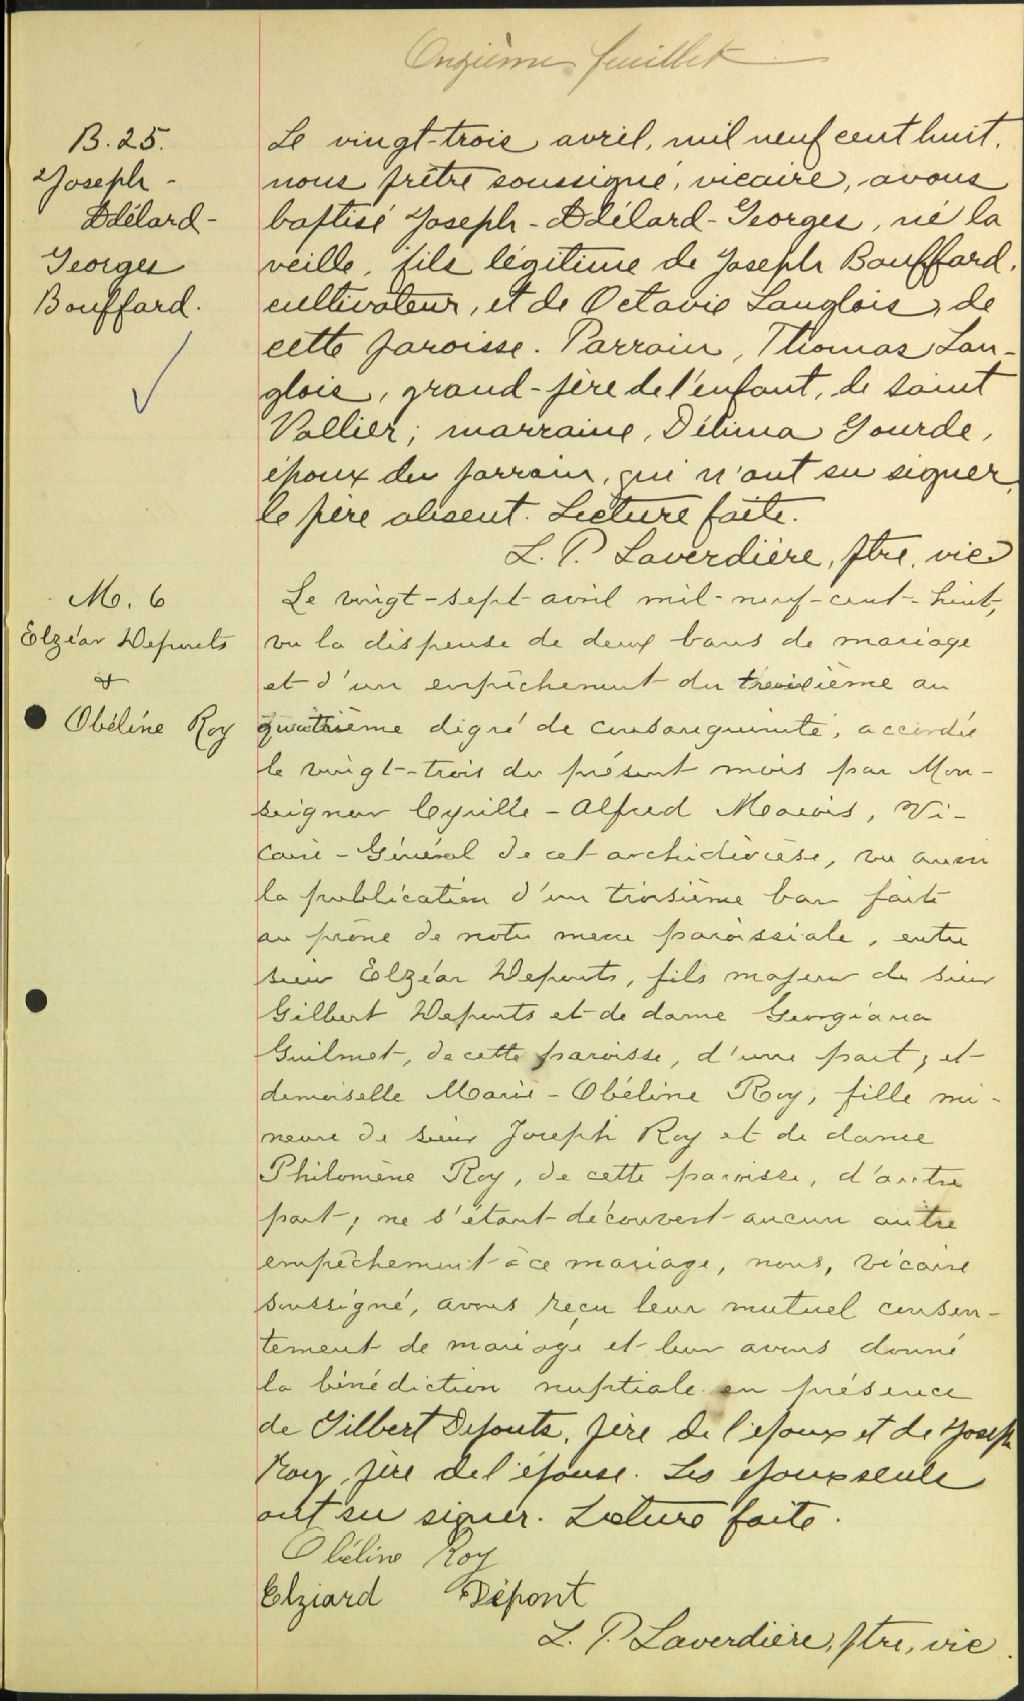 Onzième feuillet
B. 25.
Joseph-
Adélard-
Georges
Bouffard.
Le vingt-trois avril, mil neuf cent huit,
nous prêtre soussigné, vicaire, avons
baptisé Joseph-Adélard-Georges, né la
veille, fils légitime de Joseph Bouffard,
cultivateur, et de Octavie Langlois, de
cette paroisse. Parrain, Thomas Lan-
glois, grand-père de l'enfant, de Saint
Vallier; marraine, Délima Gourde,
époux du parrain, qui n'ont su signer,
le père absent. Lecture faite.
L. P. Laverdière, ptre, vic
M. 6
Elzéar Deponts
&
Obéline Roy
Le vingt-sept avril mil-neuf-cent-huit,
vu la dispense de deux bans de mariage
et d'un empêchement du troisième au
quatrième degré de consanguinité, accordée
le vingt-trois du présent mois par Mon-
seigneur Cyrille-Alfred Marois, Vi-
caire-Général de cet archidiocèse, vu aussi
la publication d'un troisième ban faite
au prône de notre messe paroissiale, entre
sieur Elzéar Deponts, fils majeur du sieur
Gilbert Deponts et de dame Georgiana
Guilmet, de cette paroisse, d'une part; et
demoiselle Marie-Obéline Roy, fille mi-
neure de sieur Joseph Roy et de dame
Philomène Roy, de cette paroisse, d'autre
part; ne s'étant découvert aucun autre
empêchement à ce mariage, nous, vicaire
soussigné, avons reçu leur mutuel consen-
tement de mariage et leur avons donné
la bénédiction nuptiale en présence
de Gilbert Deponts, père de l'époux et de Joseph
Roy, père de l'épouse. Les époux seuls
ont su signer. Lecture faite.
Obéline Roy
Elziard Dépont
L. P. Laverdière, ptre, vic.